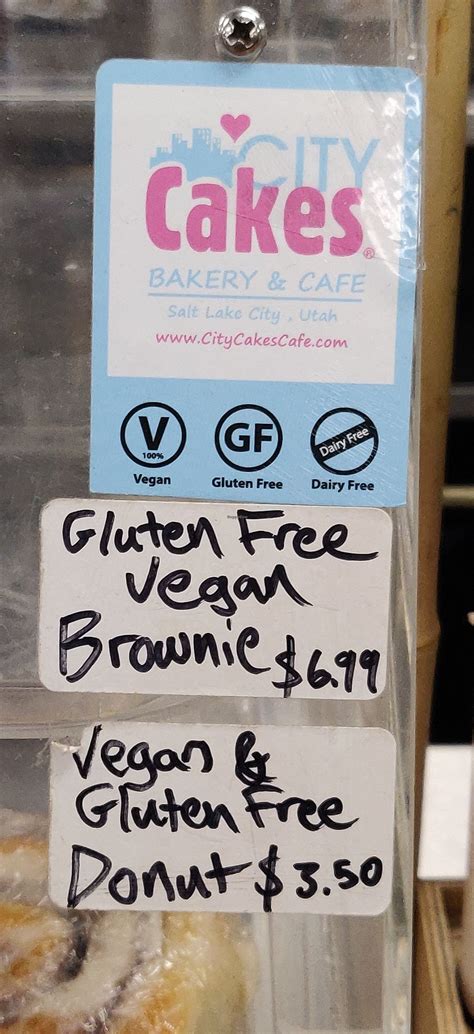 CITY
Cakes®
BAKERY & CAFE
Salt Lake City, Utah
www.CityCakesCafe.com
V
100%
Vegan
GF
Gluten Free
Dairy Free
Dairy Free
Gluten Free
Vegan
Brownie $6.99
Vegan &
Gluten Free
Donut $3.50